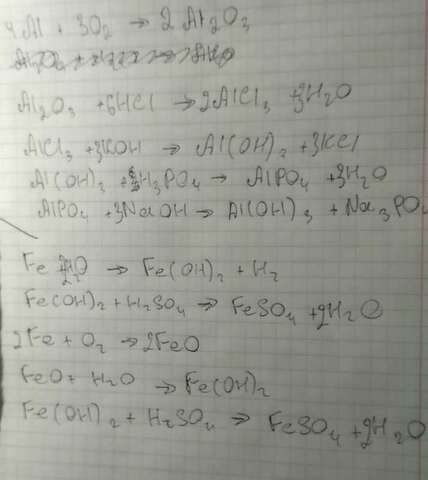 4Al + 3O₂ → 2Al₂O₃
Al₂O₃ + 6HCl → 2AlCl₃ + 3H₂O
AlCl₃ + 3KOH → Al(OH)₃ + 3KCl
Al(OH)₃ + H₃PO₄ → AlPO₄ + 3H₂O
AlPO₄ + 3NaOH → Al(OH)₃ + Na₃PO₄
Fe 2H₂O → Fe(OH)₂ + H₂
Fe(OH)₂ + H₂SO₄ → FeSO₄ + 2H₂O
2Fe + O₂ → 2FeO
FeO + H₂O → Fe(OH)₂
Fe(OH)₂ + H₂SO₄ → FeSO₄ + 2H₂O